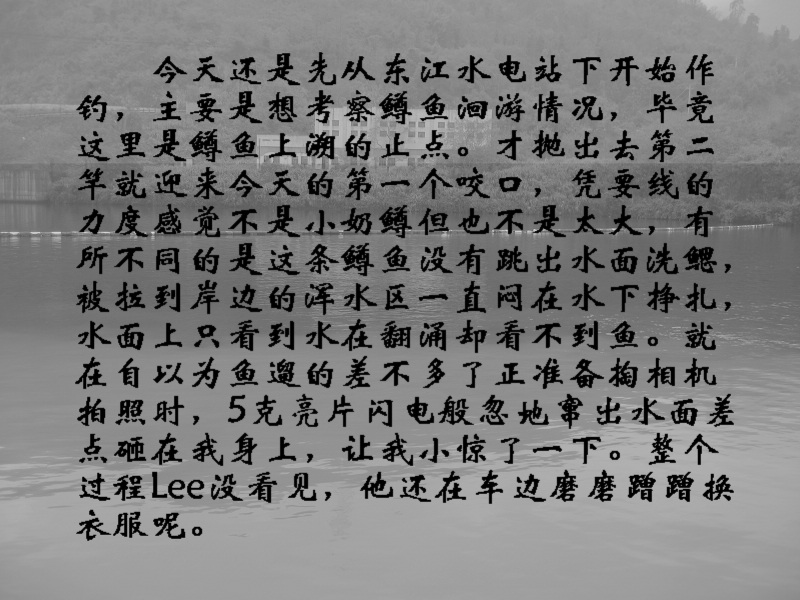 今天还是先从东江水电站下开始作
钓，主要是想考察鳟鱼洄游情况，毕竟
这里是鳟鱼上溯的止点。才抛出去第二
竿就迎来今天的第一个咬口，凭要线的
力度感觉不是小奶鳟但也不是太大，有
所不同的是这条鳟鱼没有跳出水面洗鳃，
被拉到岸边的浑水区一直闷在水下挣扎，
水面上只看到水在翻涌却看不到鱼。就
在自以为鱼遛的差不多了正准备掏相机
拍照时，5克亮片闪电般忽地窜出水面差
点砸在我身上，让我小惊了一下。整个
过程Lee没看见，他还在车边磨磨蹭蹭换
衣服呢。